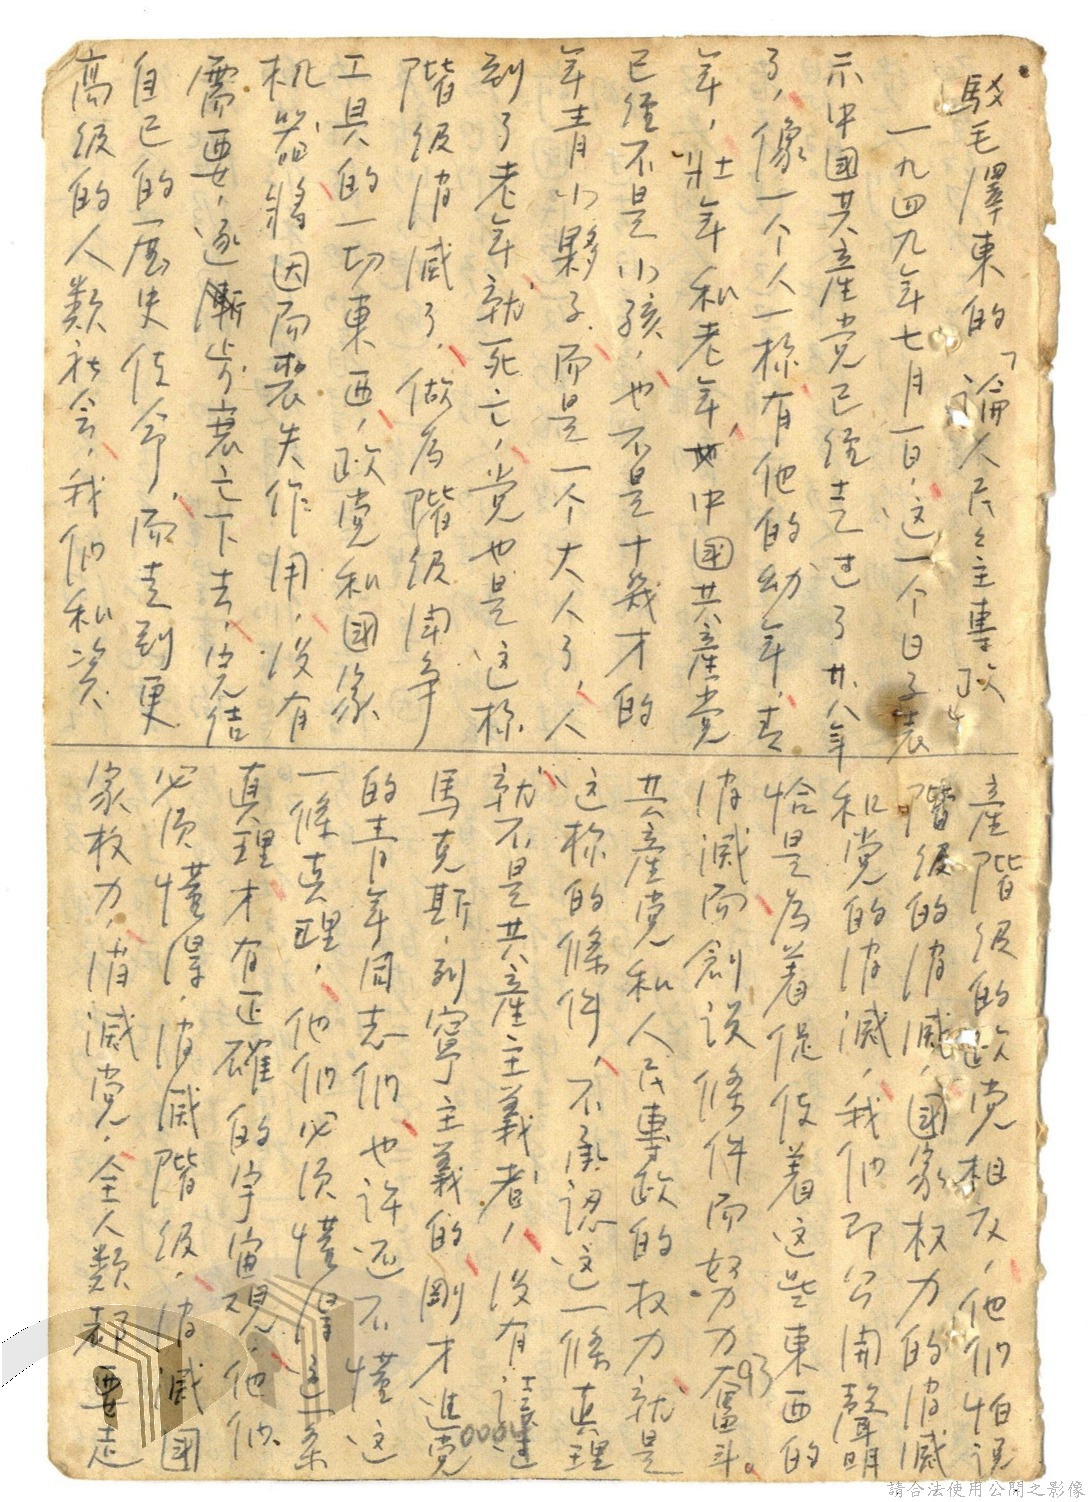 駁毛澤東的「論人民主專政」
一九四九年七月一日，這一个日子表
示中國共產党已經走过了廿八年
了，像一个人一樣有他的幼年，青
年，壯年和老年，中國共產党
已經不是小孩，也不是十幾才的
年青小夥子而是一个大人了，人
到了老年就死亡，党也是这樣
階級消滅了，做為階級鬥争
工具的一切東西，政党和國家
机器將因而喪失作用，没有
需要，逐漸步衰亡下去，完结
自己的歷史使命，而走到更
高級的人類社会，我們和资
產階級的政党相反，他們怕説
階級的消滅，國家权力的消滅
和党的消滅，我們即公開聲明
恰是為着促使着这些東西的
消滅而創設條件而努力奮斗。
共產党和人民專政的权力就是
这樣的條件，不承認这一條真理
就不是共產主義者，没有讀過
馬克斯，列寧主義的剛才進党
的青年同志們也許还不懂这
一條真理，他們必須懂得這一條
真理才有正確的宇宙观，他們
必須懂得，消滅階級，消滅國
家权力，消滅党，全人類都要走
93
請合法使用公開之影像